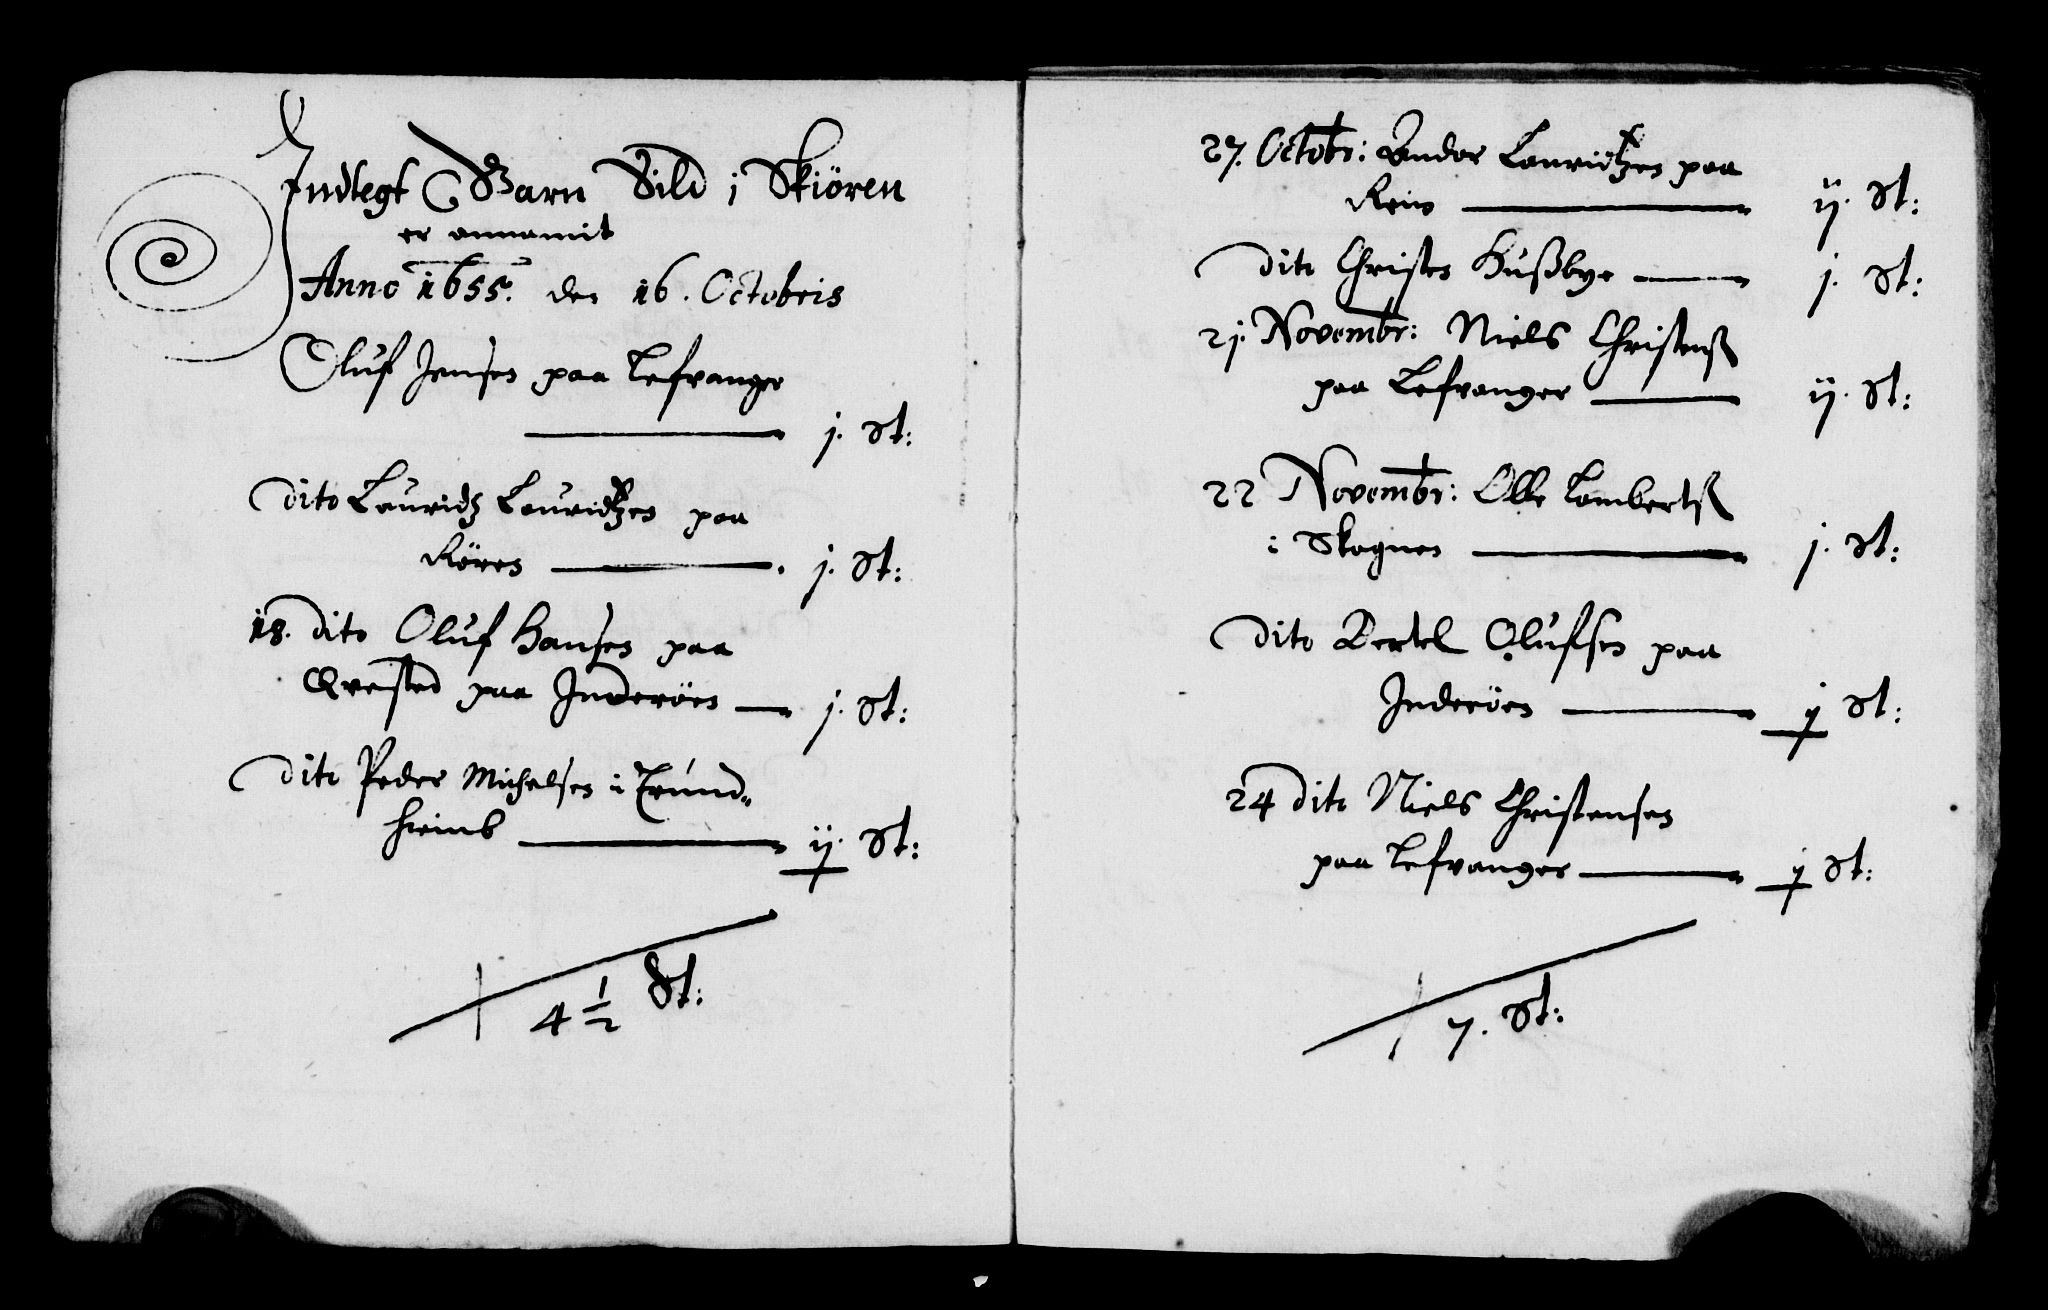 Indlegt Garn Sild i Skiören
er annamit
Anno 1655. den 16. Octobris
Oluf Jensen paa Lefvanger
j. St:
dito Lauridz Lauridtzen paa
Rören j. St:
18. dito Oluf Hansen paa
Qvested paa Inderöen j. St:
dito Peder Michelsen i Trund-
hiemb ij. St:
4 1/2 St:
27. Octobr: Ander Lauridtzen paa
Rein ij. St:
dito Christen Hußbye j. St:
21. Novembr: Niels Christenß
paa Lefvanger ij. St:
22 Novembr: Olle Lambertß
i Skognen j. St:
dito Bertel Olufsen paa
Inderöen j St:
24 dito Niels Christensen
paa Lefvanger j St:
7. St: